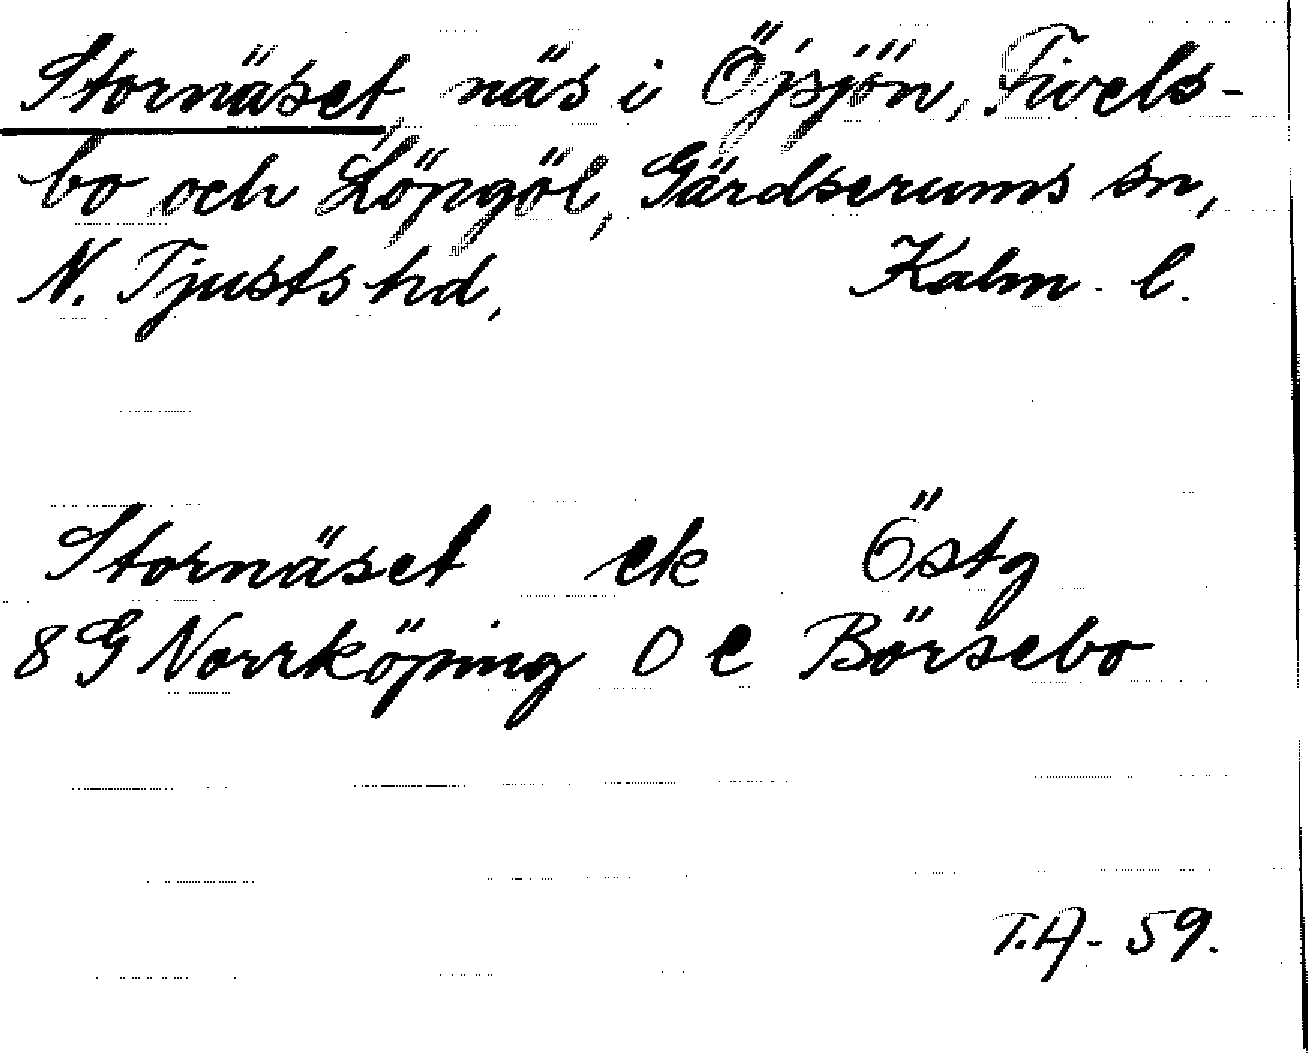 Stornäset, näs i Öjsjön, Fivels-
bo och Löpgöl, Gärdserums sn,
N. Tjusts hd, Kalm. l.
Stornäset ek Östg
8 G Norrköping 0 e Börsebo
T.A- 59.